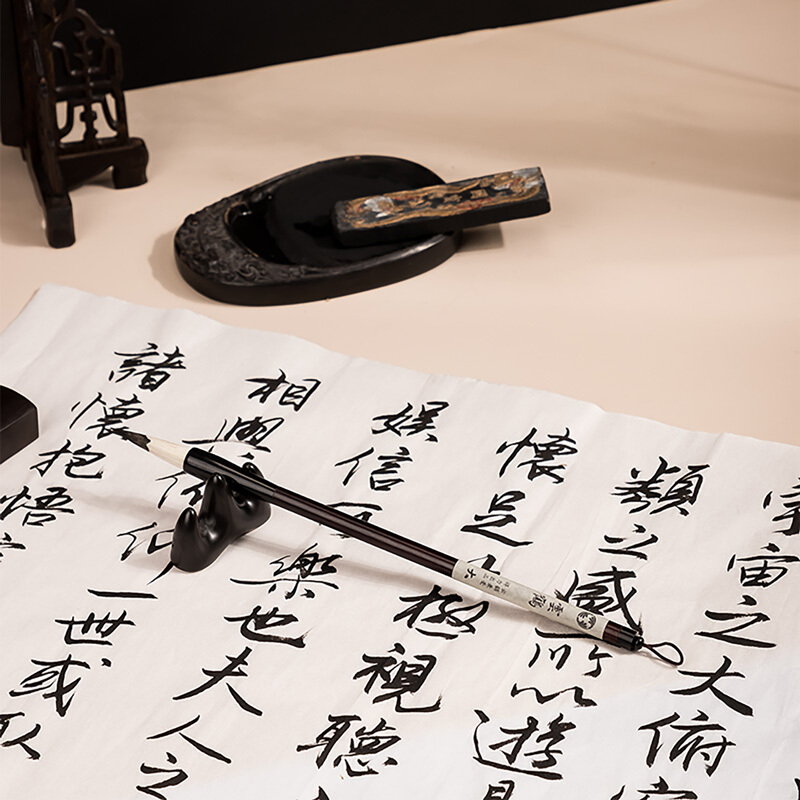 宇宙之大俯
類之盛所以遊
懷足以極視聽
娛信可樂也夫人之
相與俯仰一世或取
諸懷抱悟
大